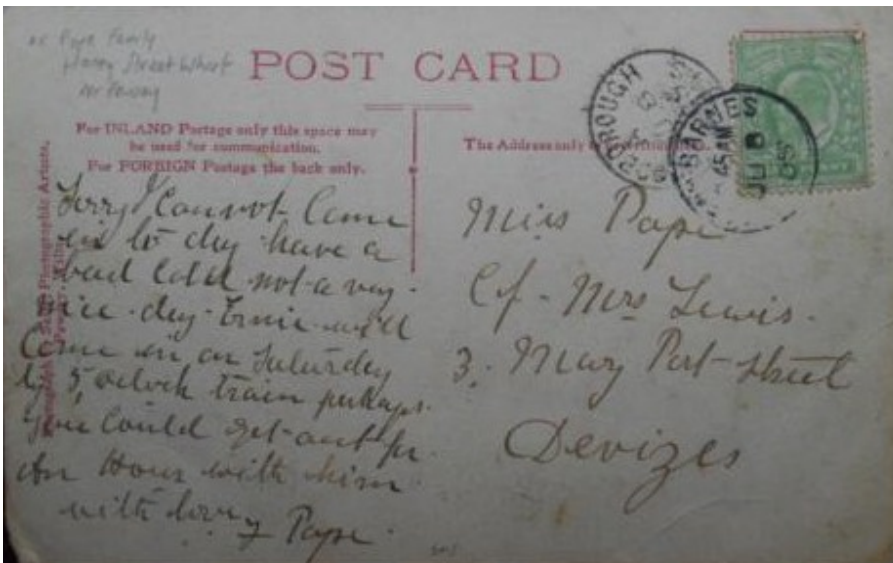 Pope Family
Honey Street Wharf
Nr Pewsey
POST CARD
For INLAND Postage only this space may
be used for communication.
For FOREIGN Postage the back only.
The Address only
Photographic Artists,
BOROUGH
BARNES
45 AM
JU 8
09
Sorry I Cannot Come
in to day have a
bad Cold not a very
nice day Ernie will
Come in on Saturday
by 5 oclock train perhaps
you Could get out for
An Hour with him
with love
Pope
Miss Pope
C/- Mrs Lewis.
3. Mary Port-street
Devizes